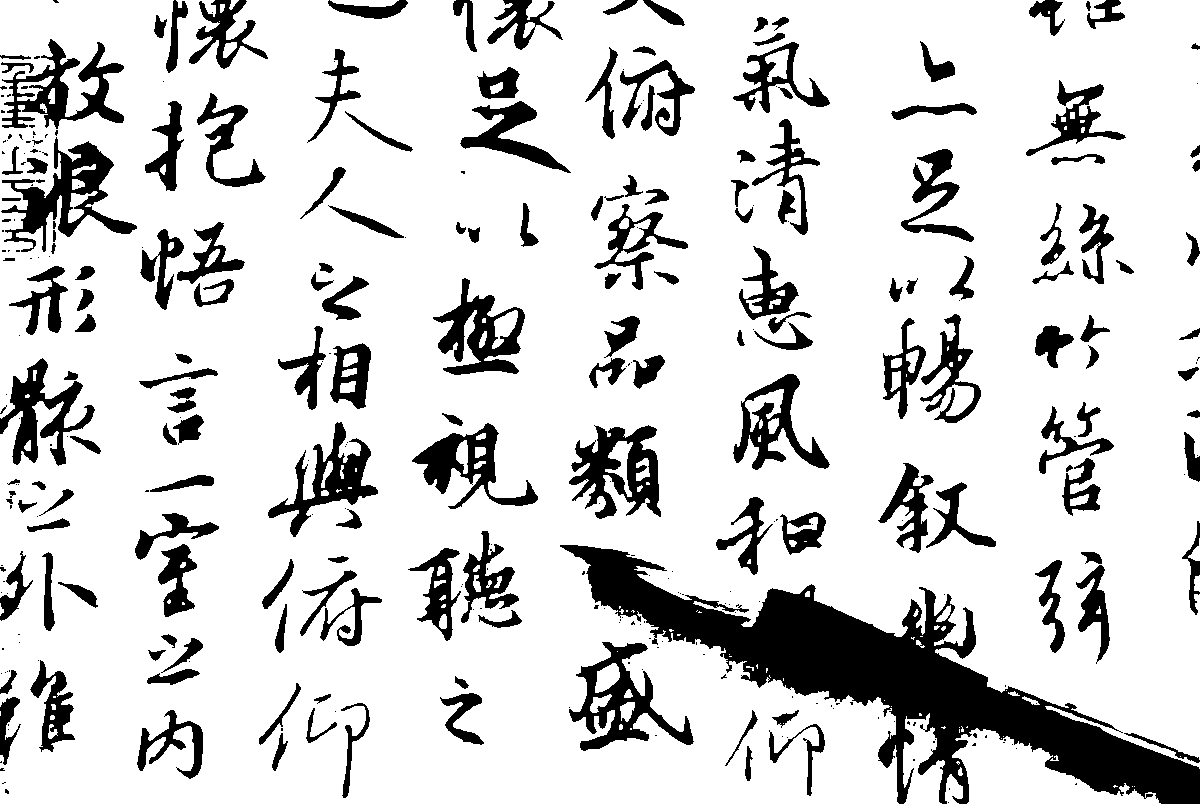 雖無絲竹管弦
亦足以暢叙幽情
氣清惠風和仰
大俯察品類盛
懷足以極視聽之
也夫人之相與俯仰
懷抱悟言一室之內
放浪形骸之外雖